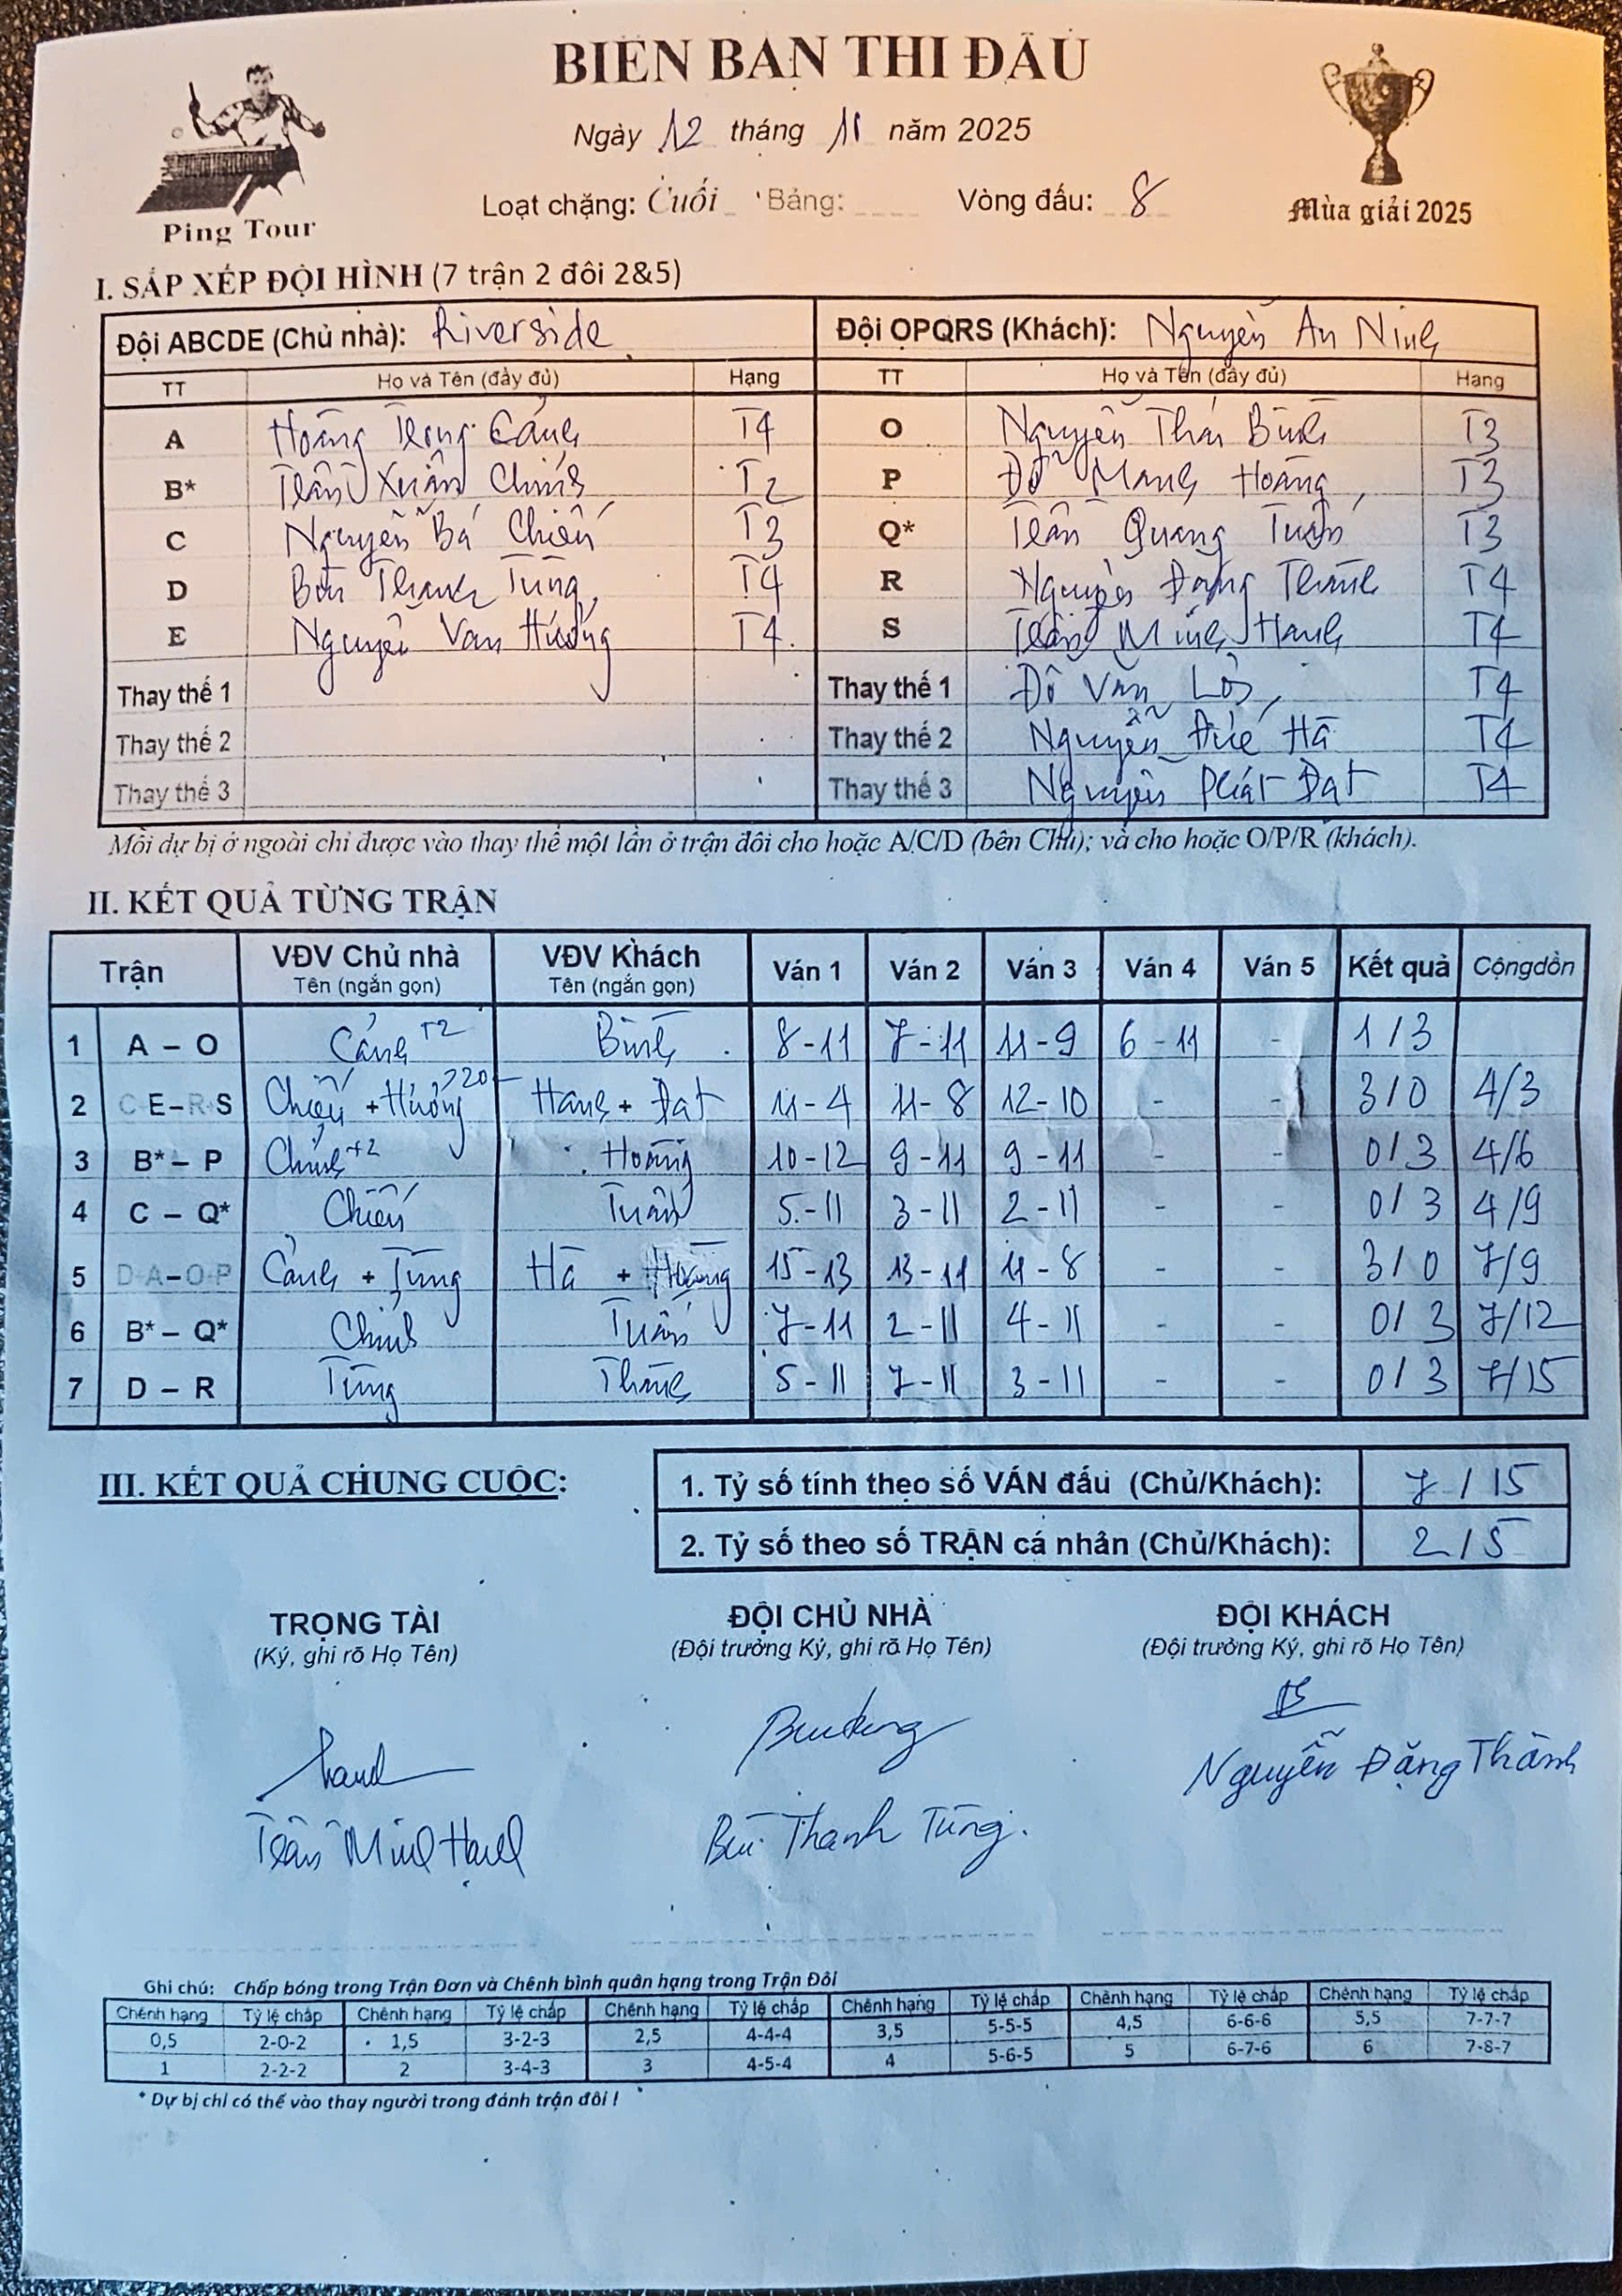 BIÊN BẢN THI ĐẤU
Ngày 12 tháng 11 năm 2025
Loạt chặng: Cuối Bảng: Vòng đấu: 8
Ping Tour
Mùa giải 2025
I. SẮP XẾP ĐỘI HÌNH (7 trận 2 đôi 2&5)
Đội ABCDE (Chủ nhà): Riverside Đội OPQRS (Khách): Nguyễn An Ninh
TT Họ và Tên (đầy đủ) Hạng TT Họ và Tên (đầy đủ) Hạng
A Hoàng Trọng Cảnh T4 O Nguyễn Thái Bình T3
B* Trần Xuân Chính T2 P Đỗ Mạnh Hoàng T3
C Nguyễn Bá Chiến T3 Q* Trần Quang Tuấn T3
D Bùi Thanh Tùng T4 R Nguyễn Đặng Thành T4
E Nguyễn Văn Hướng T4 S Trần Minh Hạnh T4
Thay thế 1 Thay thế 1 Đỗ Văn T4
Thay thế 2 Thay thế 2 Nguyễn Đức Hà T4
Thay thế 3 Thay thế 3 Nguyễn Phát Đạt T4
Mỗi dự bị ở ngoài chỉ được vào thay thế một lần ở trận đôi cho hoặc A/C/D (bên Chủ); và cho hoặc O/P/R (khách).
II. KẾT QUẢ TỪNG TRẬN
Trận VĐV Chủ nhà VĐV Khách Ván 1 Ván 2 Ván 3 Ván 4 Ván 5 Kết quả Cộngdồn
Tên (ngắn gọn) Tên (ngắn gọn)
1 A – O Cảnh +2 Bình 8-11 7-11 11-9 6-11 - 1/3
2 C E–R+S Chiến + Hướng Hạnh + Đạt 11-4 11-8 12-10 - - 3/0 4/3
3 B* – P Chính +2 Hoàng 10-12 9-11 9-11 - - 0/3 4/6
4 C – Q* Chiến Tuấn 5-11 3-11 2-11 - - 0/3 4/9
5 D+A–O+P Cảnh + Tùng Hà + Hoàng 15-13 13-11 11-8 - - 3/0 7/9
6 B* – Q* Chính Tuấn 7-11 2-11 4-11 - - 0/3 7/12
7 D – R Tùng Thành 5-11 7-11 3-11 - - 0/3 7/15
III. KẾT QUẢ CHUNG CUỘC:
1. Tỷ số tính theo số VÁN đấu (Chủ/Khách): 7/15
2. Tỷ số theo số TRẬN cá nhân (Chủ/Khách): 2/5
TRỌNG TÀI ĐỘI CHỦ NHÀ ĐỘI KHÁCH
(Ký, ghi rõ Họ Tên) (Đội trưởng Ký, ghi rõ Họ Tên) (Đội trưởng Ký, ghi rõ Họ Tên)
Trần Minh Hạnh Bùi Thanh Tùng. Nguyễn Đặng Thành
Ghi chú: Chấp bóng trong Trận Đơn và Chênh bình quân hạng trong Trận Đôi
Chênh hạng Tỷ lệ chấp Chênh hạng Tỷ lệ chấp Chênh hạng Tỷ lệ chấp Chênh hạng Tỷ lệ chấp Chênh hạng Tỷ lệ chấp Chênh hạng Tỷ lệ chấp
0,5 2-0-2 1,5 3-2-3 2,5 4-4-4 3,5 5-5-5 4,5 6-6-6 5,5 7-7-7
1 2-2-2 2 3-4-3 3 4-5-4 4 5-6-5 5 6-7-6 6 7-8-7
* Dự bị chỉ có thể vào thay người trong đánh trận đôi !